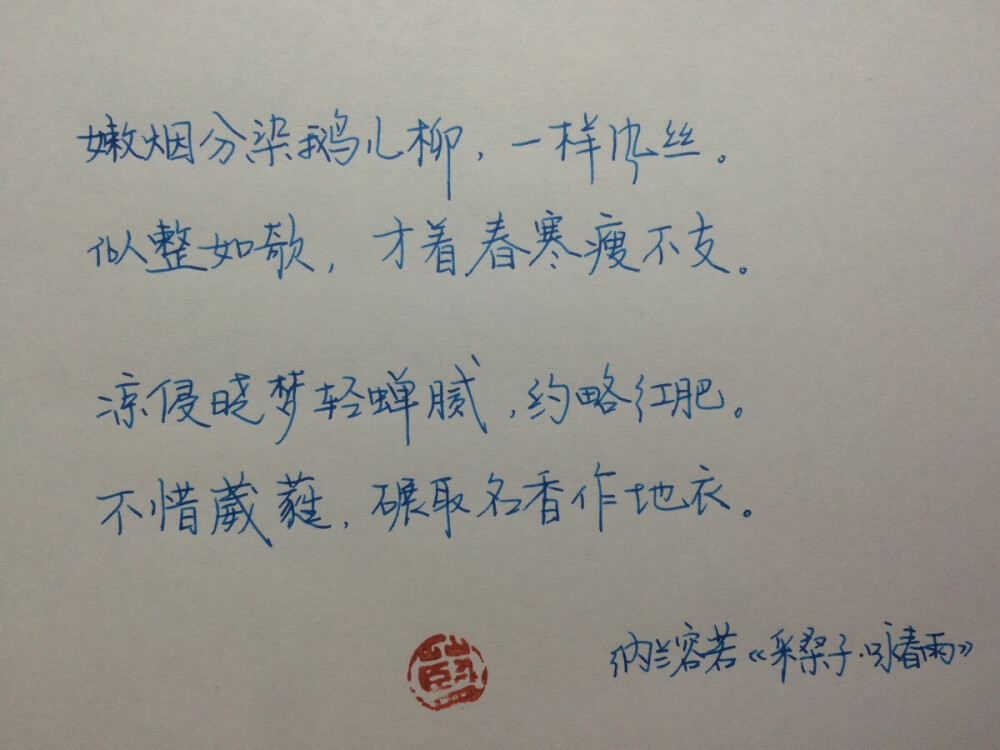 嫩烟分染鹅儿柳，一样风丝。
似整如欹，才着春寒瘦不支。
凉侵晓梦轻蝉腻，约略红肥。
不惜葳蕤，碾取名香作地衣。
纳兰容若《采桑子·咏春雨》